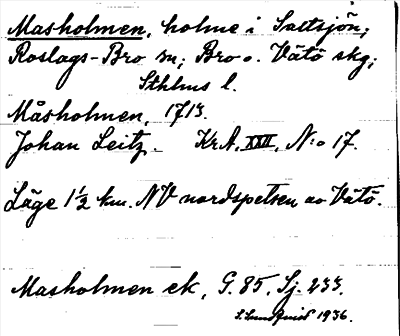 Masholmen, holme i Saltsjön;
Roslags-Bro sn; Bro o. Vätö skg;
Sthlms l.
Måsholmen, 1713.
Johan Leitz. KrA. XXII, N:o 17.
Läge 1½ km. NV nordspetsen av Vätö.
Masholmen ek, G. 85, Sj. 233.
S. Sundquist 1936.